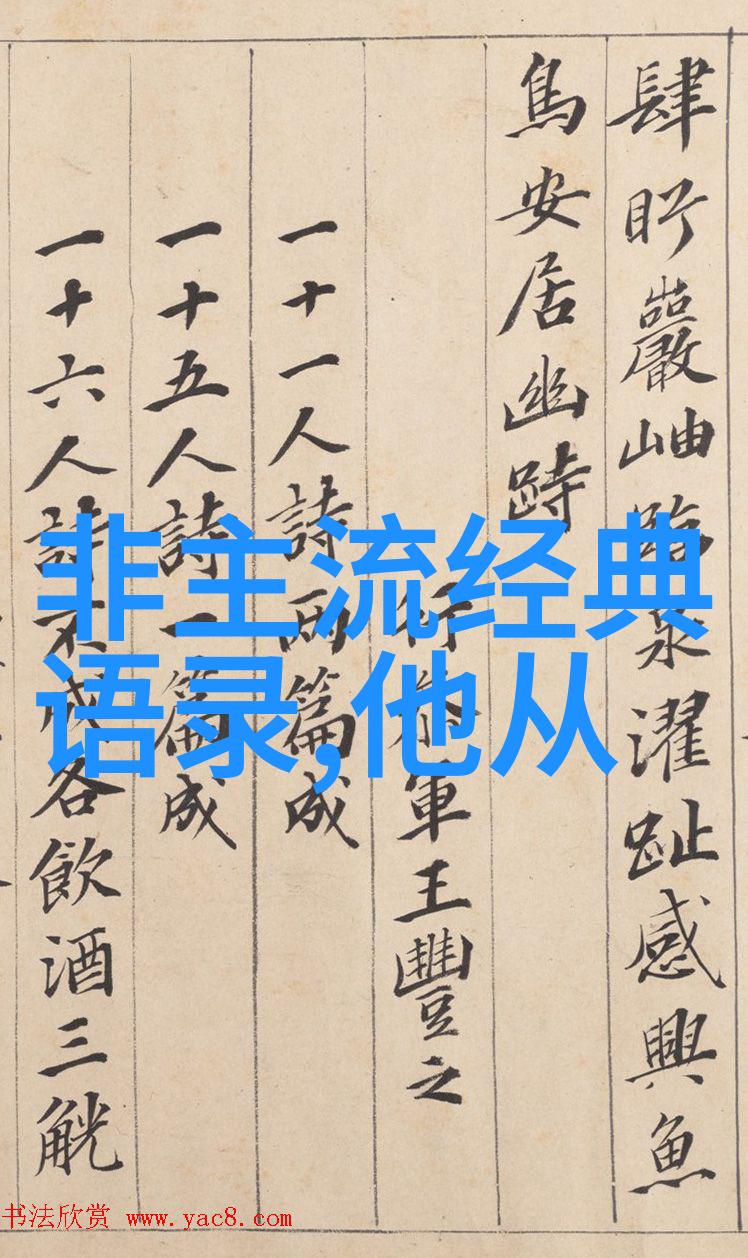 肆盱巖岫臨泉濯趾感興魚
鳥安居幽跱
行參軍王豐之
一十一人詩兩篇成
一十五人詩一篇成
一十六人詩不成各飲酒三觥
非主流经典
语录,他从
书法欣赏 www.yac8.com